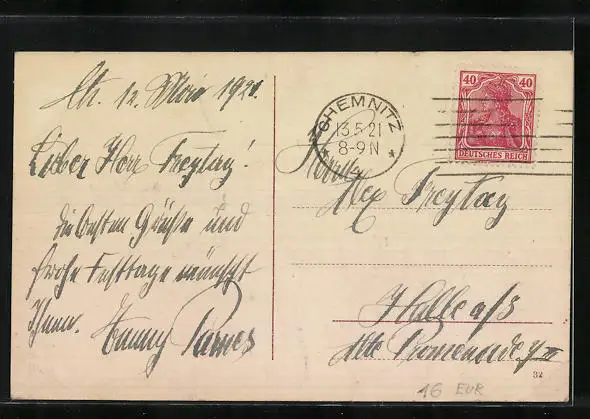 Ch. 12. Mai 1921.
Lieber Herr Freytag!
die besten Grüsse und
frohe Festtage wünscht
Ihnen Emmy
CHEMNITZ
13.5.21
8-9N
40 40
DEUTSCHES REICH
Herrn
Max Freytag
Halle a/S
Alte Promenade
32
16 EUR